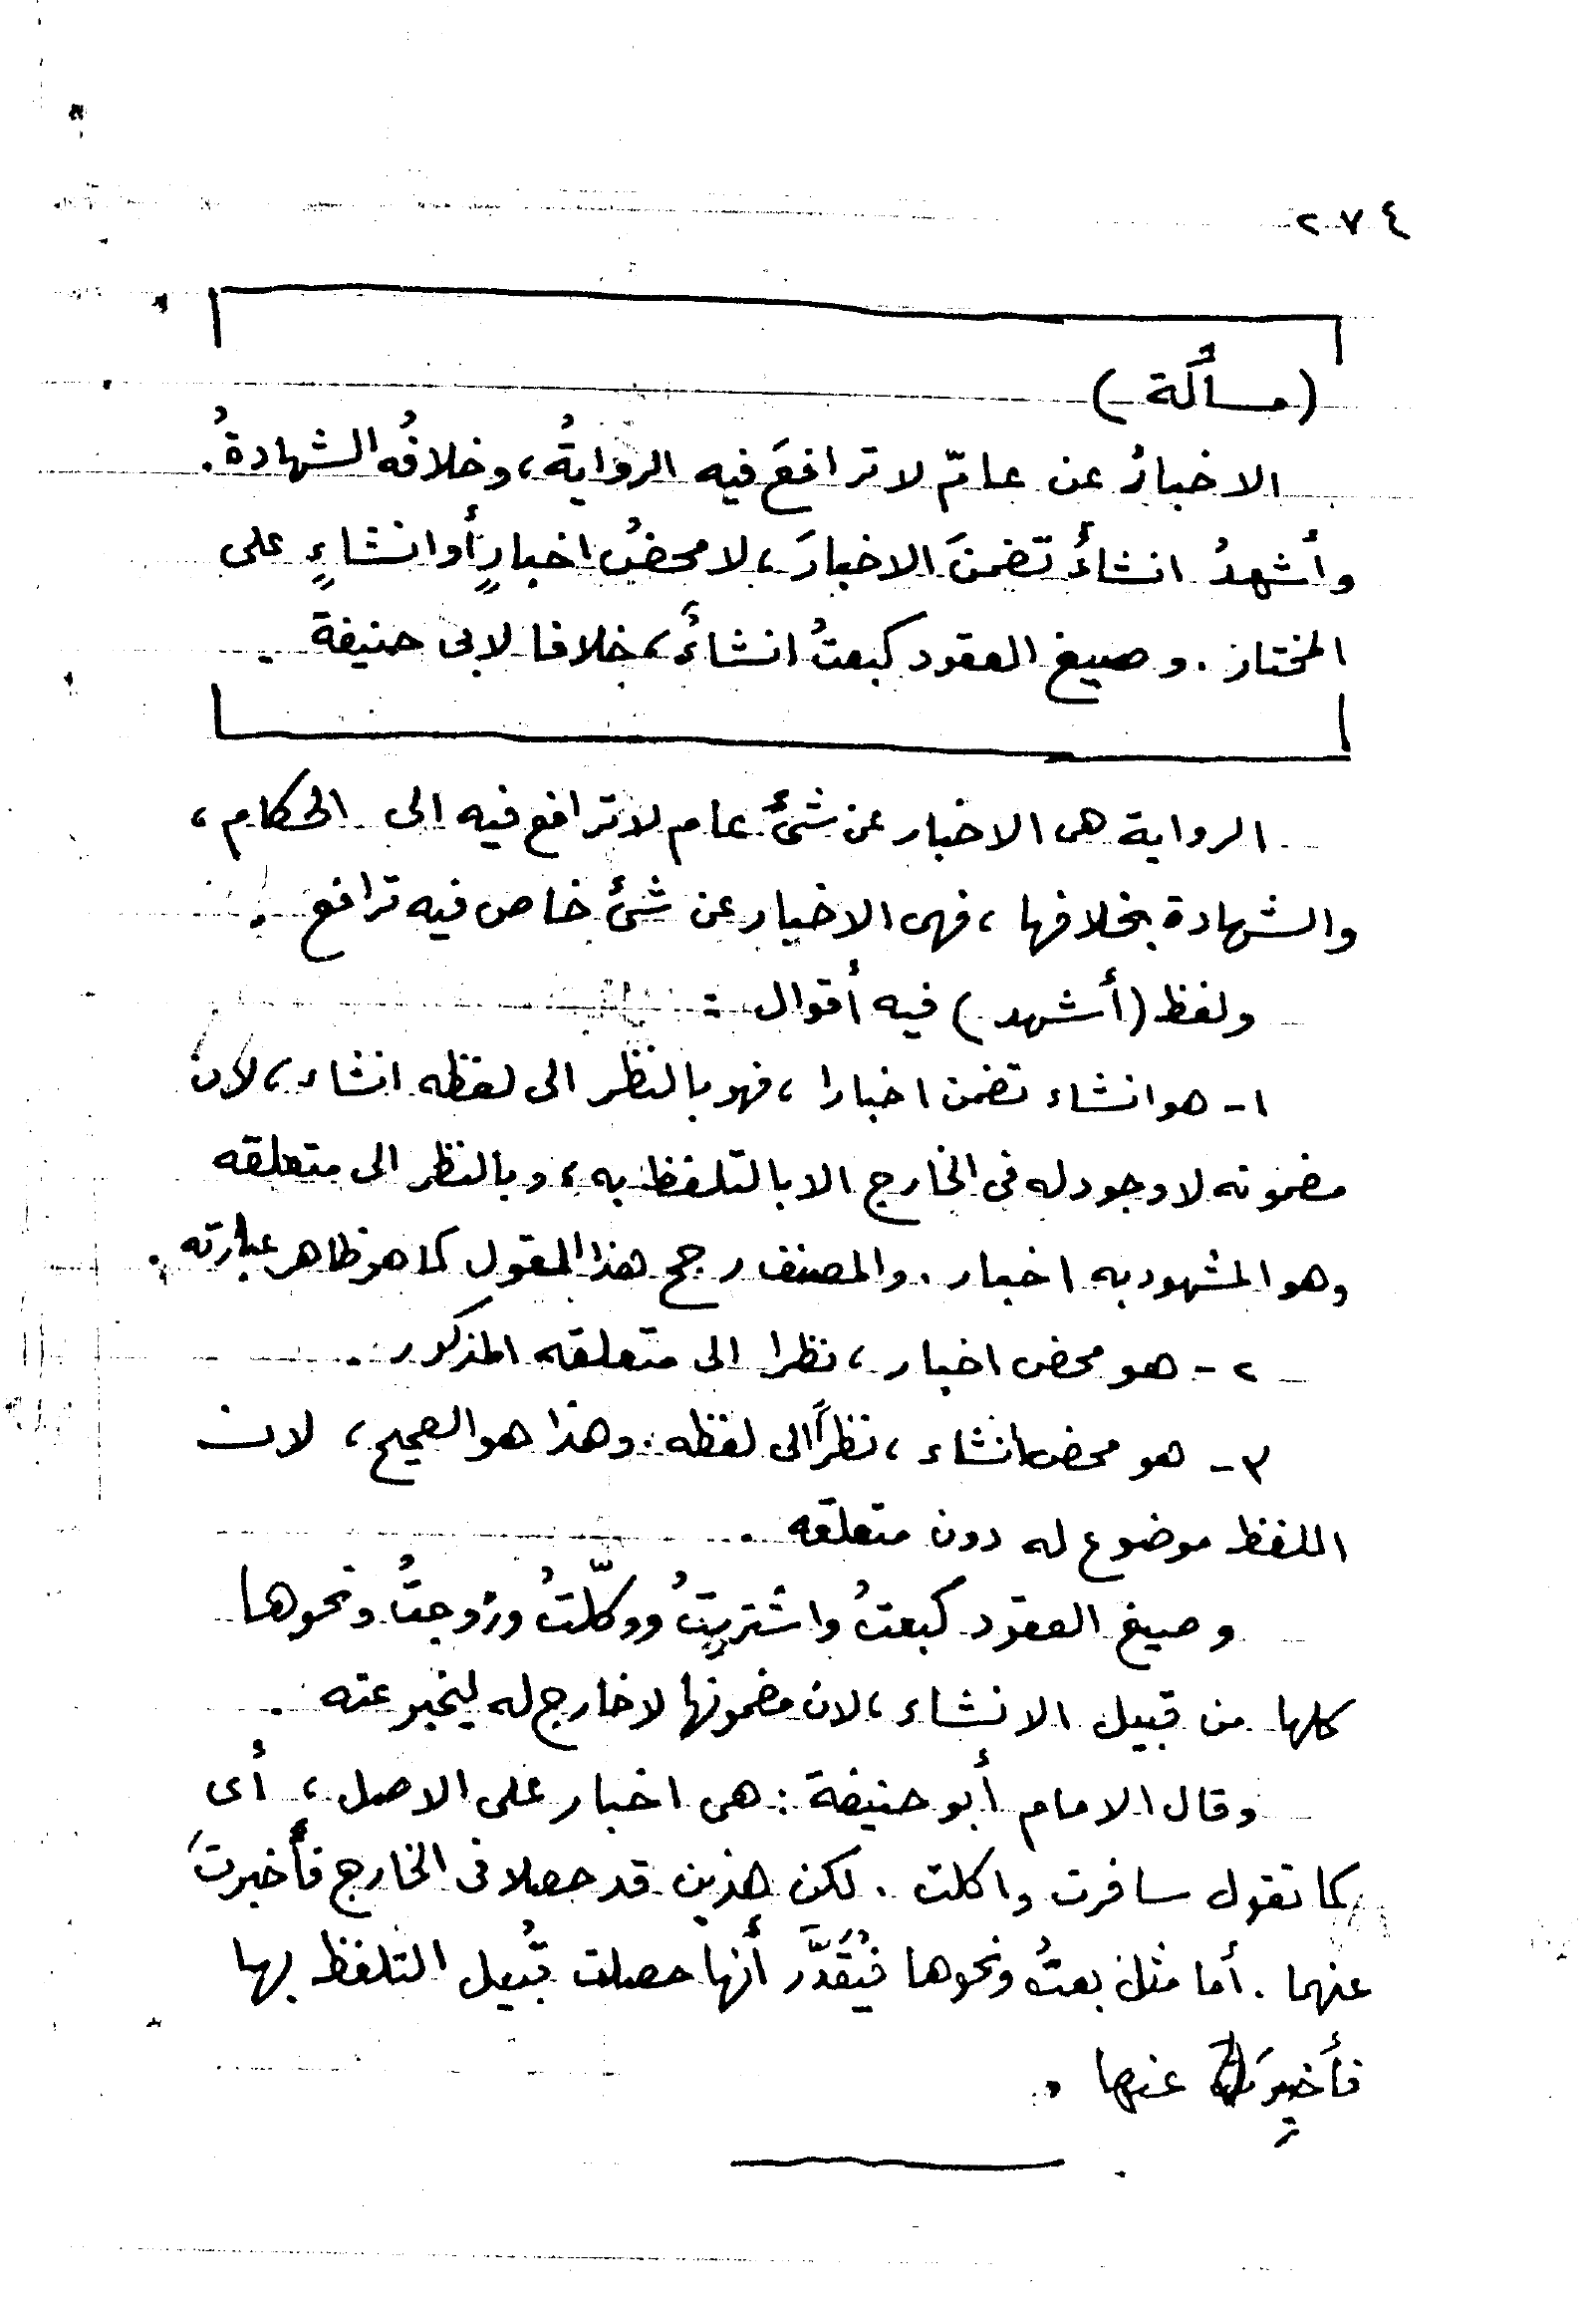 ٢٧٤
(مسألة)
الاخبارُ عن عامّ لا ترافعَ فيه الروايةُ، وخلافُه الشهادةُ.
وأشهدُ انشاءٌ تضمنَ الاخبارَ، لا محضُ اخبارٍ أو انشاءٍ على
المختار. وصيغ العقود كبعتُ انشاءٌ، خلافا لابى حنيفة.
الرواية هى الاخبار عن شئٍ عام لا ترافع فيه الى الحكام،
والشهادة بخلافها، فهى الاخبار عن شئ خاص فيه ترافع.
ولفظ (أشهد) فيه أقوال:
١- هو انشاء تضمن اخبارا، فهو بالنظر الى لفظه انشاء، لان
مضمونه لا وجود له فى الخارج الا بالتلفظ به، وبالنظر الى متعلقه
وهو المشهود به اخبار. والمصنف رجح هذا القول كما هو ظاهر عبارته.
٢- هو محض اخبار، نظرا الى متعلقه المذكور.
٣- هو محض انشاء، نظراً الى لفظه. وهذا هو الصحيح، لان
اللفظ موضوع له دون متعلقه.
وصيغ العقود كبعتُ واشتريتُ ووكّلتُ وزوجتُ ونحوها
كلها من قبيل الانشاء، لان مضمونها لا خارج له ليخبر عنه.
وقال الامام أبو حنيفة: هى اخبار على الاصل، أى
كما تقول سافرت واكلت. لكن هذين قد حصلا فى الخارج فأخبرتَ
عنهما. أما مثل بعتُ ونحوها فيُقَدَّر أنها حصلت قُبيل التلفظ بها
فأخبرتَ عنها.